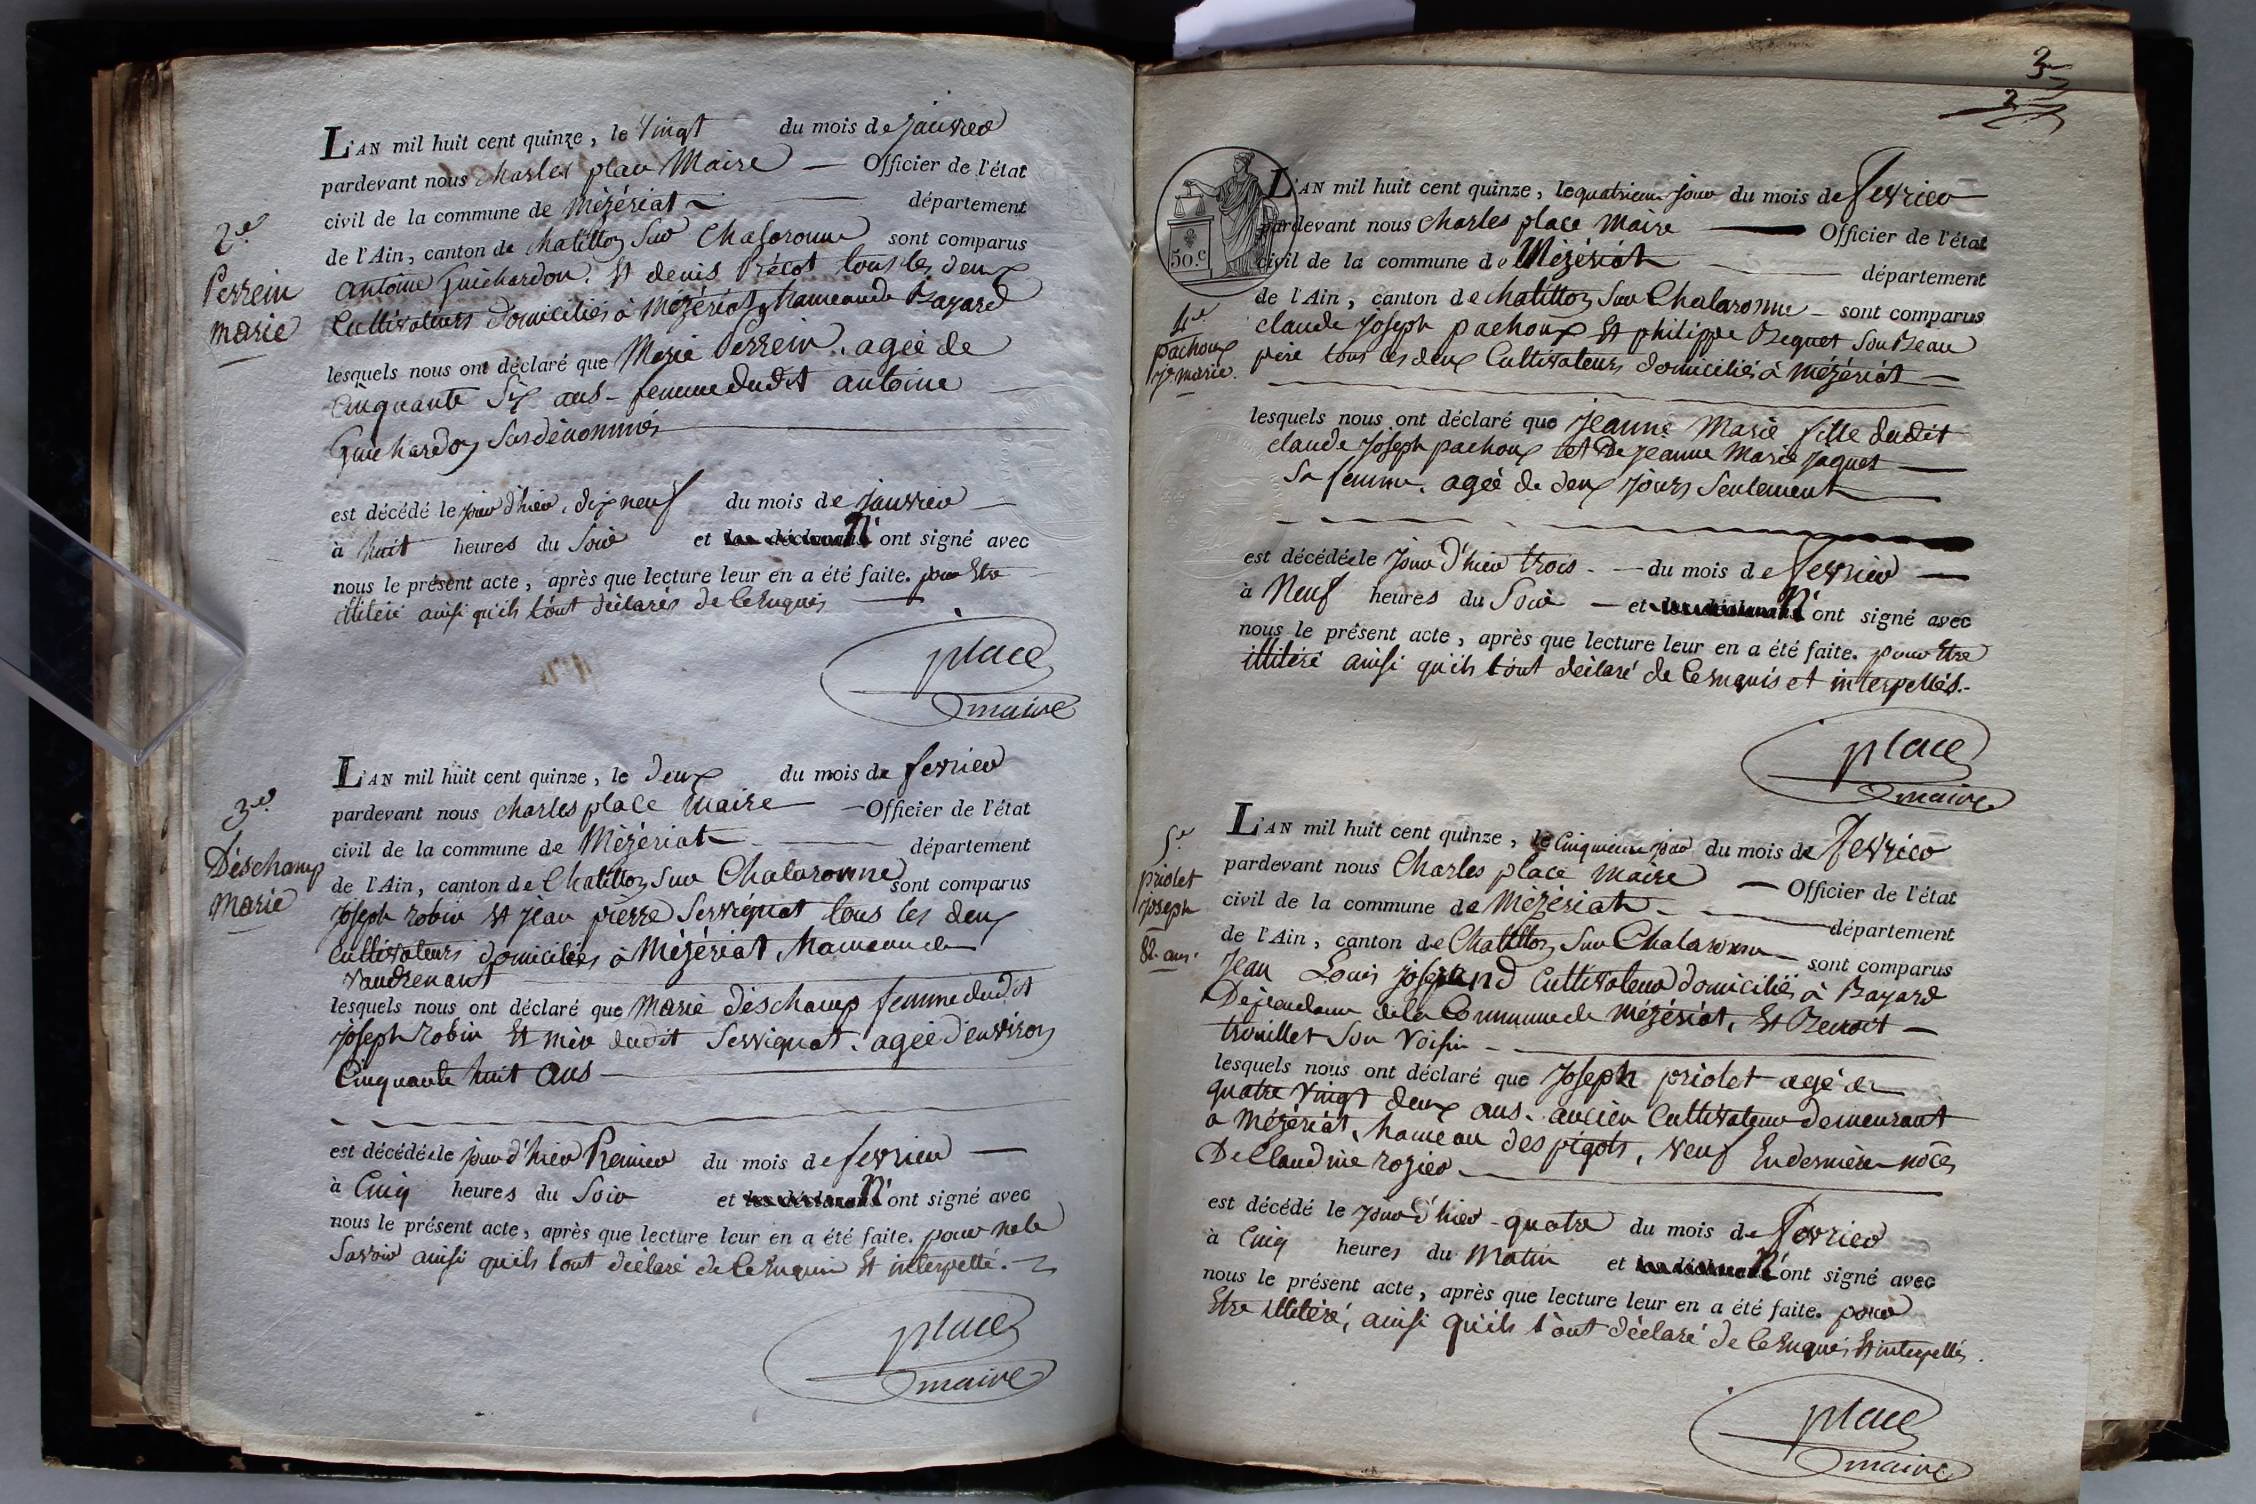 2.e
Perrein
marie
L'AN mil huit cent quinze, le vingt du mois de janvier
pardevant nous charles place Maire — Officier de l'état
civil de la commune de Mézériat — département
de l'Ain, canton de chatillon sur chalaronne sont comparus
antoine Guichardon. Et denis Précot tous les deux
Cultivateurs domiciliés à Mézériat hameau de Bayard
lesquels nous ont déclaré que Marie Perrein. agée de
Cinquante Six ans - femme dudit antoine
Guichardon Susdénommés
est décédé le jour d'hier, dix neuf du mois de janvier —
à huit heures du Soir et les déclarans n'ont signé avec
nous le présent acte, après que lecture leur en a été faite. pour Etre
illiteré ainsi qu'ils l'ont déclarés de Ce enquis
place
maire
3.e
Déschamp
marie
L'AN mil huit cent quinze, le deux du mois de fevrier
pardevant nous charles place Maire — Officier de l'état
civil de la commune de Mézériat — département
de l'Ain, canton de Chatillon sur Chalaronne sont comparus
Joseph robin Et jean pierre Servignat tous les deux
Cultivateurs domiciliés à Mézériat, hameau de
vaudrenant
lesquels nous ont déclaré que marie déschamp femme dudit
joseph robin Et mère dudit Servignat. agée d'environ
Cinquante huit ans
est décédée le jour d'hier Premier du mois de fevrier —
à Cinq heures du Soir et les déclarans n'ont signé avec
nous le présent acte, après que lecture leur en a été faite. pour ne le
Savoir ainsi qu'ils l'ont déclaré de Ce enquis Et interpellé.
place
maire
3
2
50.c
4.e
pachoux
j.e marie.
L'AN mil huit cent quinze, le quatrieme jour du mois de fevrier
pardevant nous charles place Maire — Officier de l'état
civil de la commune de Mézériat — département
de l'Ain, canton de chatillon sur Chalaronne — sont comparus
claude joseph pachoux Et philippe Bequet Son Beau
père tous les deux Cultivateurs domiciliés à mézériat —
lesquels nous ont déclaré que Jeanne Marie fille dudit
claude joseph pachoux et De jeanne Marie jaquet —
Sa femme. agée de deux jours Seulement
est décédée le jour d'hier trois — du mois de fevrier —
à Neuf heures du Soir — et les déclarans n'ont signé avec
nous le présent acte, après que lecture leur en a été faite. pour Etre
illiteré ainsi qu'ils l'ont déclaré de Ce enquis et interpellés.
place
maire
5.e
priolet
joseph
82. ans.
L'AN mil huit cent quinze, le Cinquieme jour du mois de fevrier
pardevant nous Charles place Maire — Officier de l'état
civil de la commune de Mézériat — département
de l'Ain, canton de Chatillon sur Chalaronne — sont comparus
Jean Louis joserand Cultivateur domiciliés à Bayard
Dépendance de la Commune de mézériat, Et Benoit —
trouillet Son voisin
lesquels nous ont déclaré que joseph priolet agé de
quatre vingt deux ans. ancien Cultivateur demeurant
à Mézériat, hameau des pigots, veuf En dernière noces
De Claudine rozier
est décédé le jour d'hier - quatre du mois de fevrier
à Cinq heures du Matin et les déclarans n'ont signé avec
nous le présent acte, après que lecture leur en a été faite. pour
Etre illitéré, ainsi qu'ils l'ont déclaré de Ce enquis Et interpellés.
place
maire